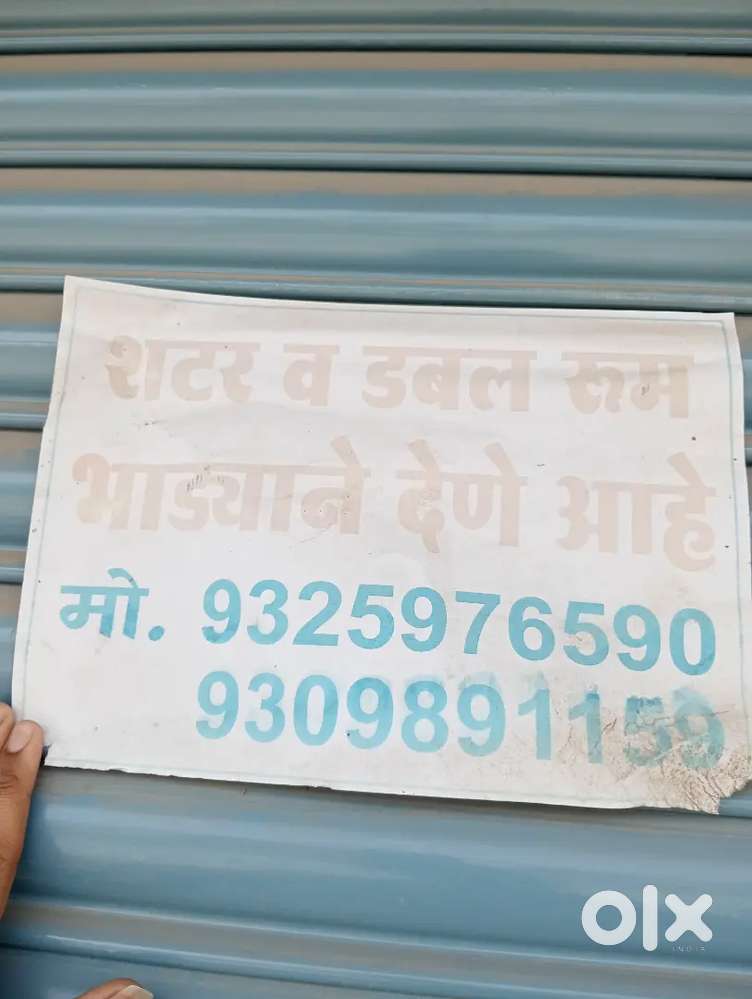 शटर व डबल रूम
भाड्याने देणे आहे
मो. 9325976590
9309891159
olx
INDIA